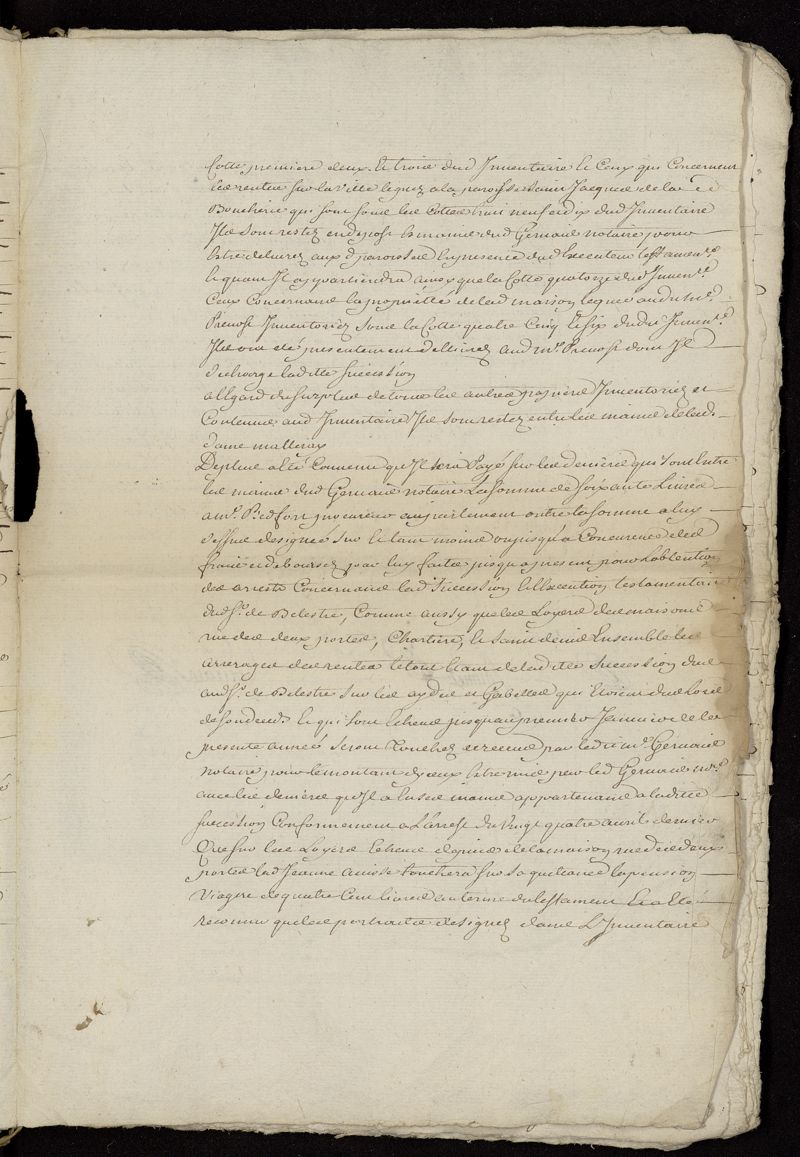 Cotte premiere deux et trois dud Inventaire et Ceux qui Concernent
les rentes sur la ville leguez a la paroisse saint Jacques de la
Boucherie qui sont sous les Cottes huit neuf et dix dud Inventaire
Ils sont restez en depost es mains dud Germain notaire pour
estre delivrez aux d paroisses En presence dud Executeur testament.re
le quant Il appartiendra ainsy que la Cotte quatorze dud Invent.re
Ceux Concernant la propriété de lad maison leguée aud s.r
Prevost Inventoriez sous la Cotte quatre Cinq et six dudit Invent.re
Ils ont été presentement delivrez aud m.r Prevost dont Il
decharge ladite succession
a l'Egard du surplus de tous les autres papiers Inventoriez et
Contenus aud Inventaire Ils sont restez entre les mains de lad.
dame
De plus a esté Convenu qu'Il sera Payé sur les deniers qui sont Entre
les mains dud Germain notaire La somme de soixante Livres
a m.e Bedfort procureur au parlement outre la somme a luy
dessus designée sur et tant moins ou jusqu'a Concurence des
frais et deboursez par luy faits jusqu'a present pour l'obtention
des arrests Concernant lad succession et l'Execution testamentaire
dud s.r de Belestre, Comme aussy que les Loyers des maisons
rue des deux portes, Chartiere, et saint denis Ensemble les
arrerages des rentes le tout Estant de ladite succession dud
aud s.r de Belestre sur les aydes et Gabelles qui
de fonds et qui sont Echeus jusqu'au premier Janvier de la
presente année seront Touchez et receus par ledit m.e Germain
notaire pour le montant d'Iceux estre mis par led Germain no.re
avec les deniers qu'Il a en ses mains appartenans a ladite
succession Conformement a L'arrest du Vingt quatre avril dernier
Que sur les Loyers Echeus depuis de la maison rue des deux
portes lad Jeanne touchera sur sa quittance la pension
Viagere de quatre Cent livres au terme du testament Et a Eté
reconnu que les portraits designez dans L'Inventaire